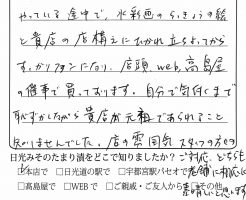 やっている途中で、水彩画のらっきょうの絵
と貴店の店構えにひかれ立ちよってから
すっかりファンになり、店頭、web、高島屋
の催事で買っております。自分で気付くまで
恥ずかしながら貴店が元祖であられること
知りませんでした。店の雰囲気、スタッフの方の
日光みそのたまり漬をどこで知りましたか？ご対応、どちらも
本店で □日光道の駅で □宇都宮駅パセオで 老舗に相応しく
□高島屋で □WEBで □ご親戚・ご友人から □その他
素晴しいと思います